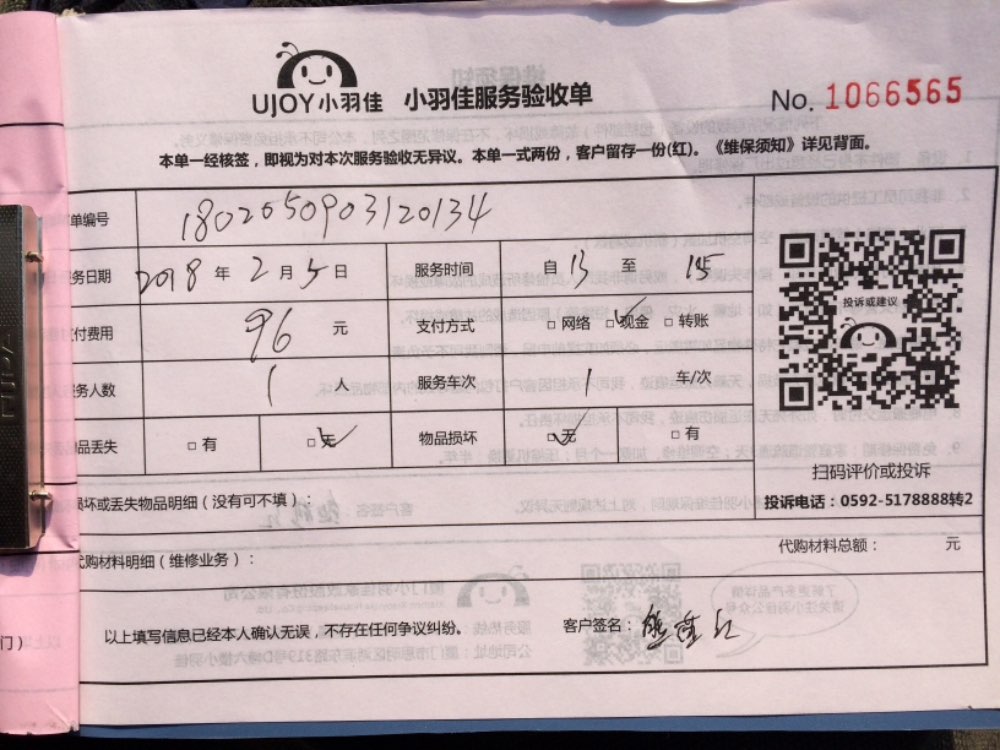 UJOY小羽佳 小羽佳服务验收单
No. 1066565
本单一经核签，即视为对本次服务验收无异议。本单一式两份，客户留存一份(红)。《维保须知》详见背面。
单编号 1802050903120134
务日期 2018 年 2 月 5 日 服务时间 自 13 至 15
付费用 96 元 支付方式 □ 网络 □ 现金 □ 转账
务人数 1 人 服务车次 1 车/次
品丢失 □ 有 □ 无 物品损坏 □ 无 □ 有
投诉或建议
扫码评价或投诉
投诉电话：0592-5178888转2
坏或丢失物品明细（没有可不填）：
代购材料明细（维修业务）：
代购材料总额： 元
门）
以上填写信息已经本人确认无误，不存在任何争议纠纷。 客户签名：